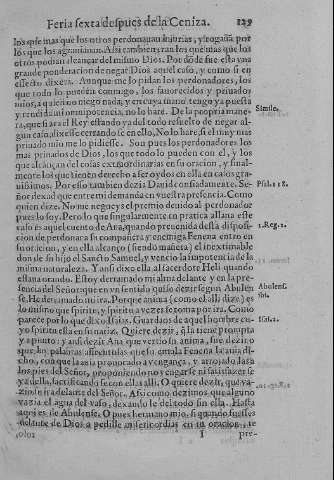 Feria sexta despues de la Ceniza. 129
los q̃ se mas que los otros perdonauan injurias, y rogauã por
los que los agrauiauan. Assi tambien eran los que mas que los
otros podian alcançar del mismo Dios. Por dõde fue esta vna
grande ponderacion de negar Dios aquel caso, y como si en
effecto dixera. Aunque me lo pidan los perdonadores, los
que todo lo pueden conmigo, los fauorecidos y priuados
mios, a quien no niego nada, y en cuya mano tengo ya puesta
y rendida mi omnipotencia, no lo haré. De la propria mane-
ra, que si acà el Rey estando ya del todo resuelto de negar al-
gun caso, dixesse cerrandose en ello, No lo haré, si el muy mas
priuado mio me lo pidiesse. Son pues los perdonadores los
mas priuados de Dios, los que todo lo pueden con el, y los
que alcançan del cosas extraordinarias en su oracion, y final-
mente los que tienen derecho a ser oydos en ella en casos gra-
uissimos. Por esso tambien dezia Dauid confiadamente. Se-
ñor dexad que entre mi demanda en vuestra presencia. Como
quien dize. No me negueys el premio deuido al perdonador
pues lo soy. Pero lo que singularmente en pratica allana este
caso es aquel cuento de Ana, quando preuenida desta disposi-
cion de perdonar a su compañera y enemiga Fenena entrò en
su oracion, y en ella alcançò (siendo mañera) el inestimable
don de su hijo el Sancto Samuel, y vencio la impotencia de la
misma naturaleza. Y ansi dixo ella al sacerdote Heli quando
estaua orando. Estoy derramado mi alma delante y en la pre-
sencia del Señor que en vn sentido quiso dezir segun Abulen-
se. He derramado mi ira. Porque anima (como el alli dize) es
lo mismo que spiritu, y spiritu a vezes se toma por ira. Como
parece por lo que dixo Isaias. Guardaos de aquel hombre cu-
yo spiritu esta en su nariz. Quiere dezir, q̃ la tiene prompta
y a punto: y ansi dezir Ana que vertio su anima, fue dezir
que las palabras affrentosas que su emula Fenena la auia di-
cho, con que la auia prouocado a vengança, y arrojado la a
los pies del Señor, proponiendo no vengarse ni satisfazerse
y a della, sacrificando se con ella alli. O quiere dezir, que va-
ziando ira delante del Señor. Assi como dezimos que alguno
vazia el agua del vaso, dexando le del todo sin ella. Hasta
aqui es de Abulense. O pues hermano mio, si quando fuesses
delante de Dios a pedille misericordias en tu oracion, te
I pre-
Simile.
Psal. 118.
1. Reg. 1.
Abulens.
ibi.
Isai. 2.